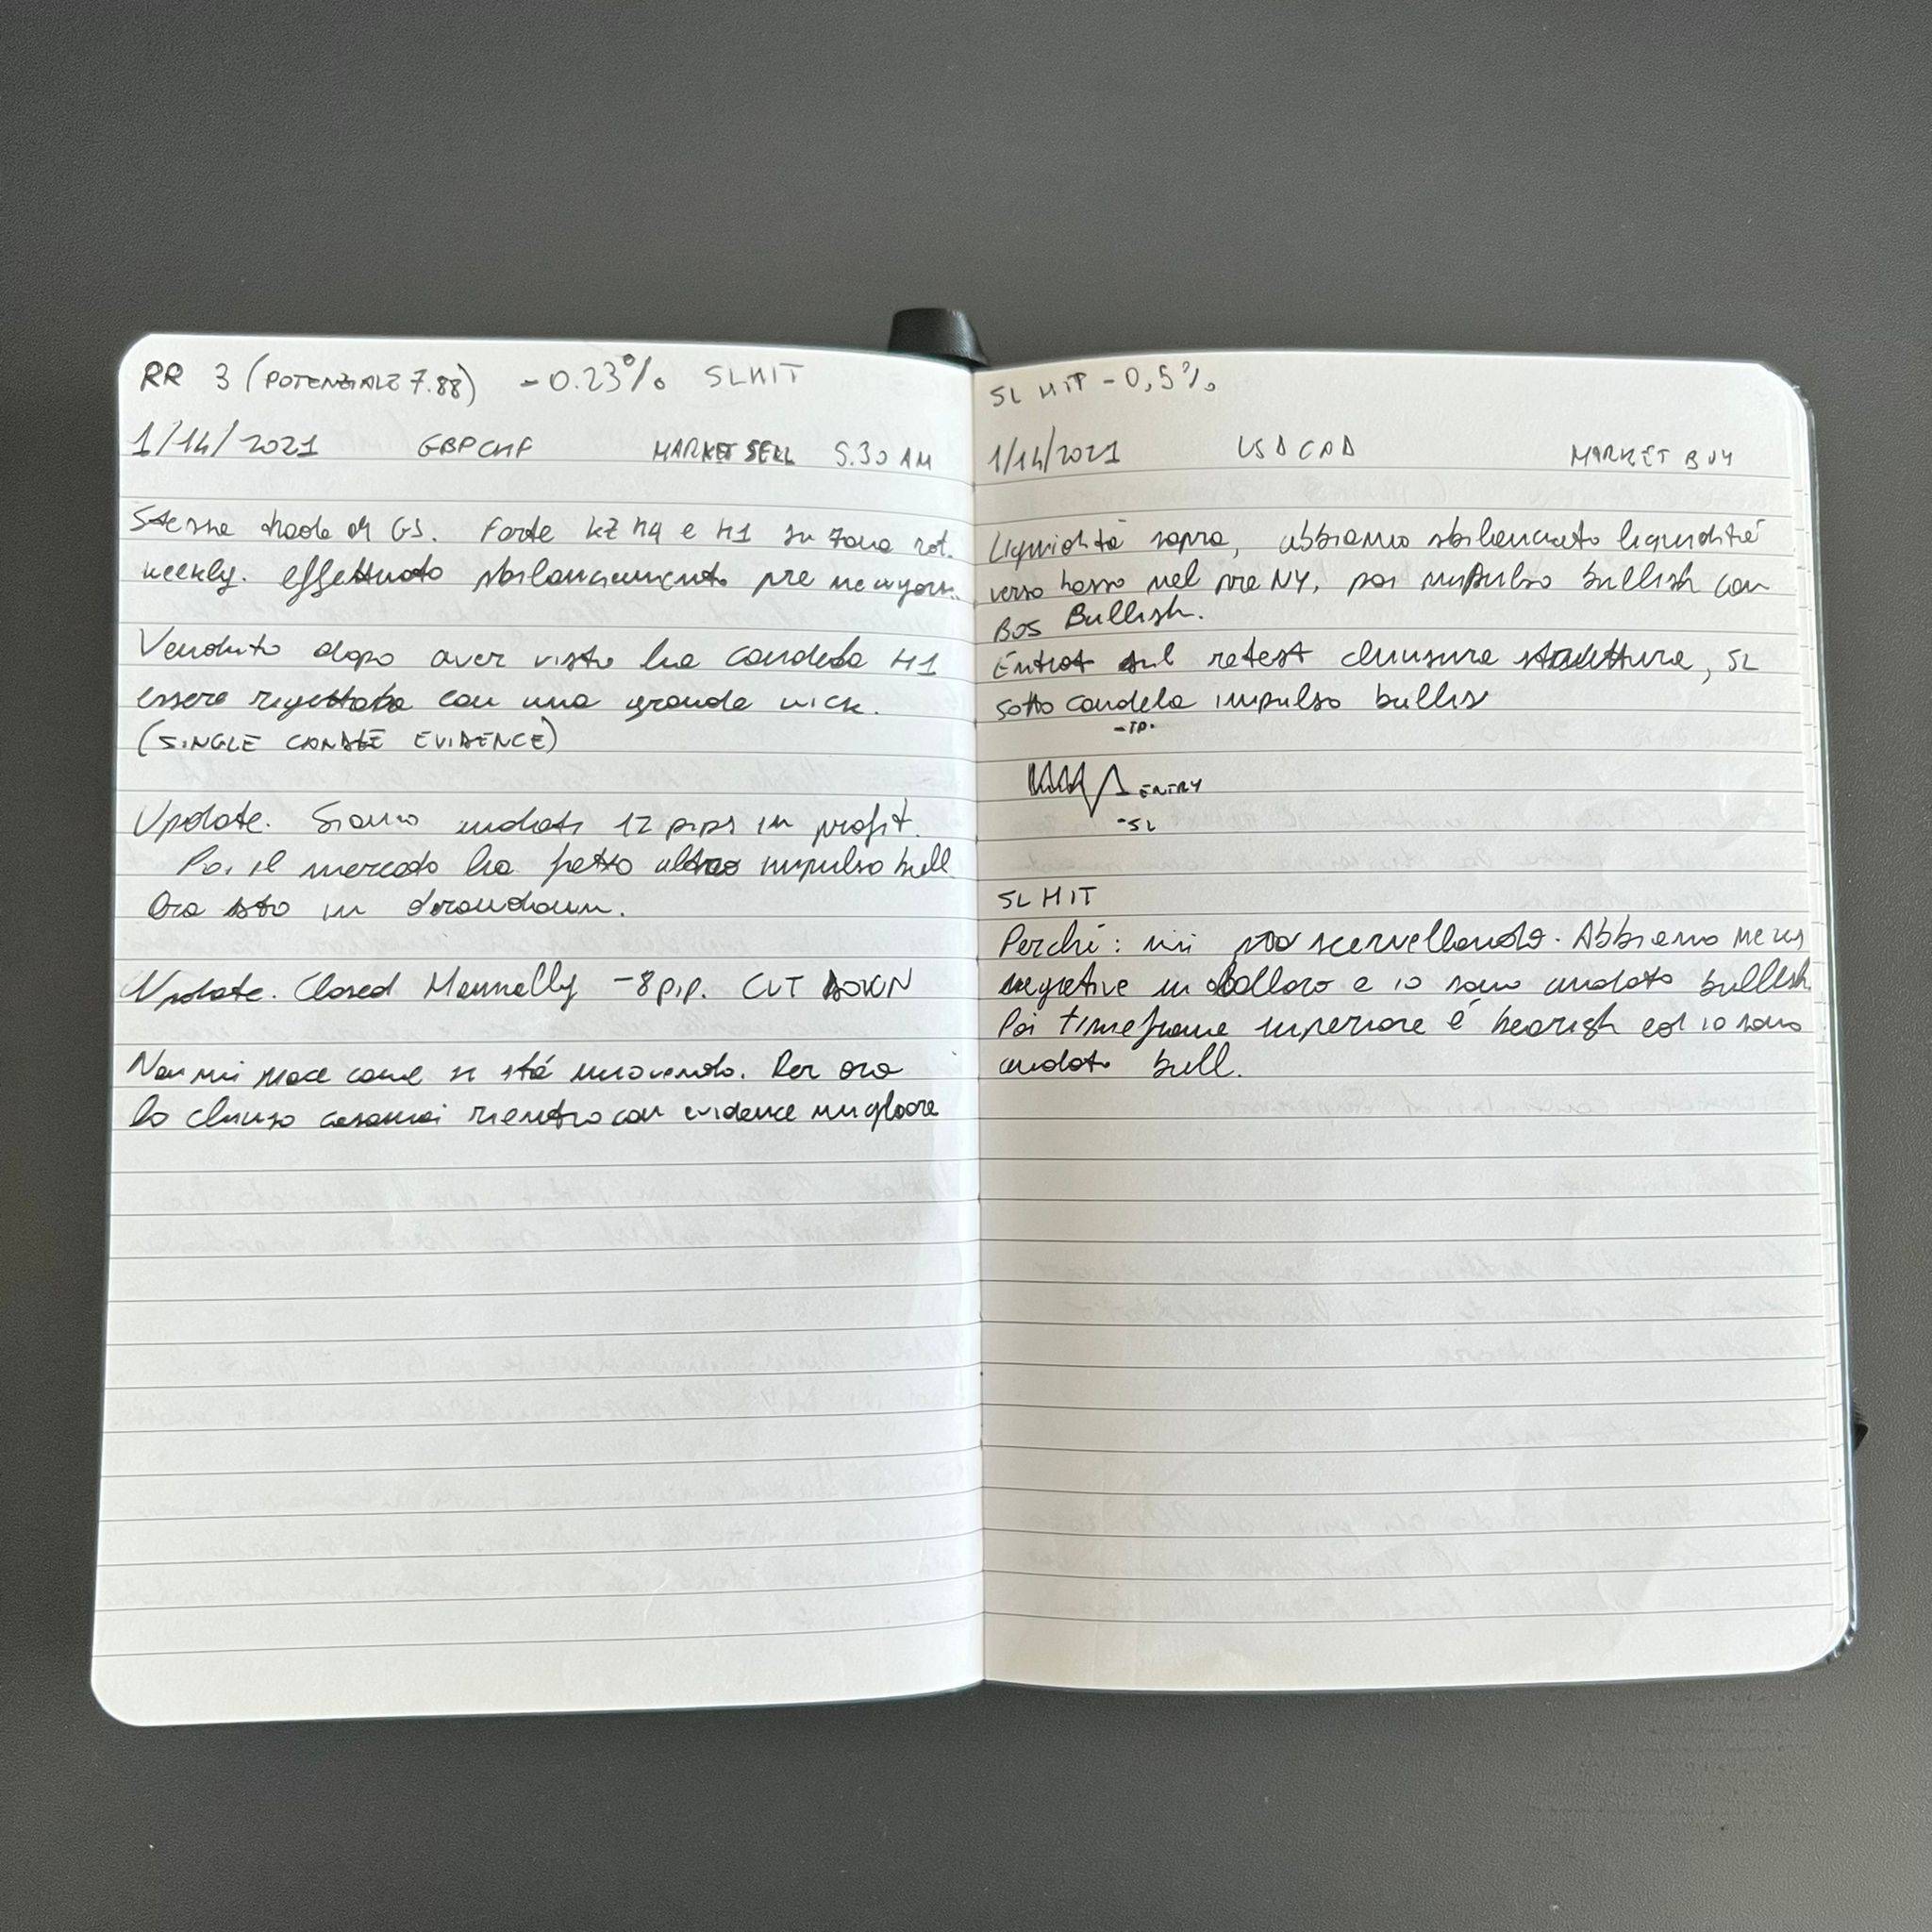 RR 3 (POTENZIALE 7.88) -0.23% SLHIT
1/14/2021 GBPCHF MARKET SELL 5.30 AM
Stessa trade di GJ. Forte KZ H4 e H1 su zona
weekly. effettuato sbilanciamento pre newyork.
Venduto dopo aver visto la candela H1
essere rigettata con una grande wick.
(SINGLE CANDLE EVIDENCE)
Update. Siamo andati 12 pips in profit.
Poi il mercato ha fatto altro impulso bull
Ora sto in drawdown.
Update. Closed Mannally -8 pip. CUT DOWN
Non mi piace come si stá muovendo. Per ora
lo chiuso casomai rientro con evidence migliore
SL HIT -0,5%
1/14/2021 USDCAD MARKET BUY
Liquidità sopra, abbiamo sbilanciato liquidità
verso basso nel pre NY, poi impulso bullish con
BOS Bullish.
Entrat sul retest chiusura struttura, SL
sotto candela impulso bullis
-TP.
ENTRY
-SL
SL HIT
Perché: mi sto scervellando. Abbiamo news
negative in dollaro e io sono andato bullish.
Poi timeframe superiore é bearish ed io sono
andato bull.